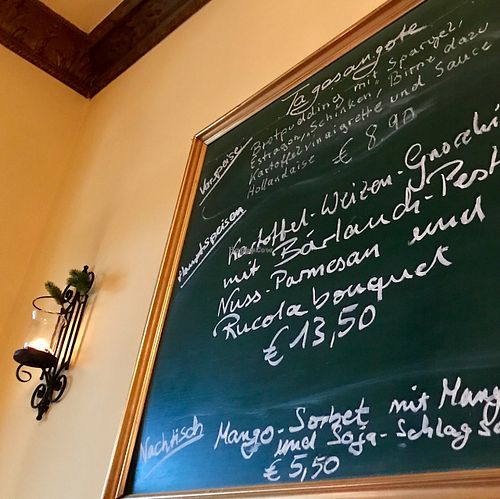 Tagesangote
Vorspeise
Brotpudding mit Spargel,
Estragon, Schinken, Birne dazu
Kartoffelvinaigrette und Sauce
Hollandaise € 8,90
Hauptspeisen
Kartoffel-Weizen-Gnocchi
mit Bärlauch-Pest
Nuss-Parmesan und
Rucolabouquet
€ 13,50
Nachtisch
Mango-Sorbet mit Mang
und Soja-Schlag Sa
€ 5,50